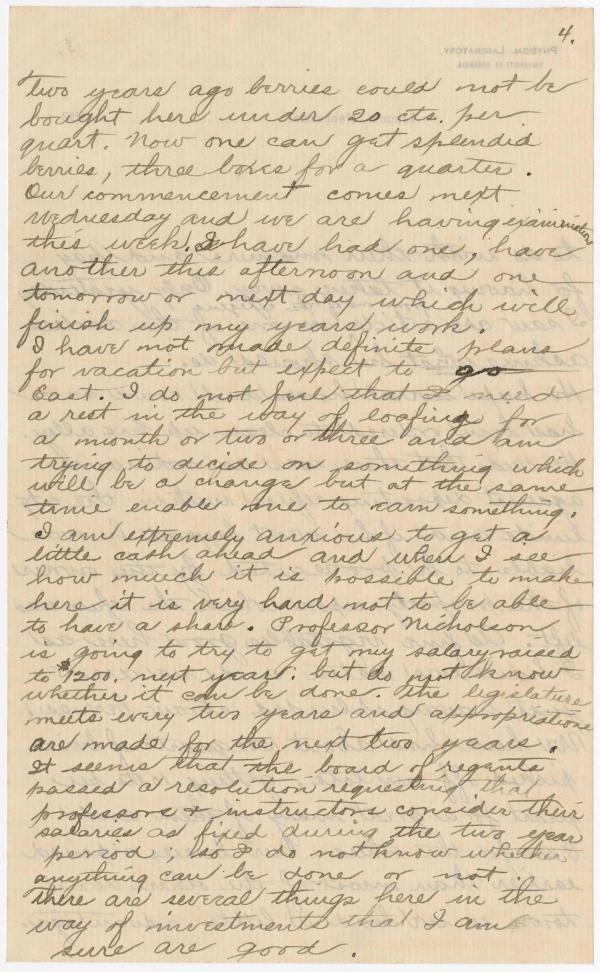 4.
two years ago berries could not be
bought here under 20 cts. per
quart. Now one can get splendid
berries, three boxes for a quarter.
Our commencement comes next
Wednesday and we are having examinations
this week. I have had one, have
another this afternoon and one
tomorrow or next day which will
finish up my years work.
I have not made definite plans
for vacation but expect to go
East. I do not feel that I need
a rest in the way of loafing for
a month or two or three and am
trying to decide on something which
will be a change but at the same
time enable me to earn something.
I am extremely anxious to get a
little cash ahead and when I see
how much it is possible to make
here it is very hard not to be able
to have a share. Professor Nicholson
is going to try to get my salary raised
to $1200. next year: but do not know
whether it can be done. The legislature
meets every two years and appropriations
are made for the next two years.
It seems that the board of regents
passed a resolution requesting that
professors & instructors consider their
salaries as fixed during the two year
period; so I do not know whether
anything can be done or not.
There are several things here in the
way of investments that I am
sure are good.